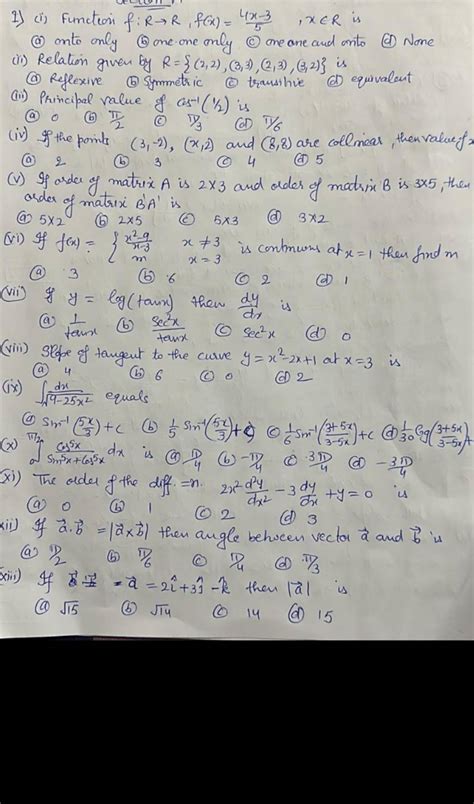 1) (i) Function f: R→R, f(x) = (4x-3)/5 , x∈R is
(a) onto only (b) one-one only (c) one one and onto (d) None
(ii) Relation given by R = {(2,2), (3,3), (2,3), (3,2)} is
(a) Reflexive (b) Symmetric (c) transitive (d) equivalent
(iii) Principal value of Cos⁻¹(1/2) is
(a) 0 (b) π/2 (c) π/3 (d) π/6
(iv) If the points (3,-2), (x,2) and (8,8) are collinear, then value of x
(a) 2 (b) 3 (c) 4 (d) 5
(v) If order of matrix A is 2x3 and order of matrix B is 3x5, then
order of matrix B'A' is
(a) 5x2 (b) 2x5 (c) 5x3 (d) 3x2
(vi) If f(x) = { (x²-9)/(x-3) x ≠ 3 is continuous at x=1 then find m
m x = 3
(a) 3 (b) 6 (c) 2 (d) 1
(vii) If y = log(tanx) then dy/dx is
(a) 1/tanx (b) sec²x/tanx (c) sec²x (d) 0
(viii) Slope of tangent to the curve y = x²-2x+1 at x=3 is
(a) 4 (b) 6 (c) 0 (d) 2
(ix) ∫ dx/√(9-25x²) equals
(a) Sin⁻¹(5x/3)+c (b) 1/5 Sin⁻¹(5x/3)+c (c) 1/6 Sin⁻¹((3+5x)/(3-5x))+c (d) 1/30 log((3+5x)/(3-5x))+
(x) ∫₀^(π/2) Cos⁵x/(Sin⁵x+Cos⁵x) dx is (a) π/4 (b) -π/4 (c) 3π/4 (d) -3π/4
(xi) The order of the diff. =n. 2x² d²y/dx² - 3 dy/dx + y = 0 is
(a) 0 (b) 1 (c) 2 (d) 3
xii) If a⃗.b⃗ = |a⃗×b⃗| then angle between vector a⃗ and b⃗ is
(a) π/2 (b) π/6 (c) π/4 (d) π/3
xiii) If a⃗ = 2î+3ĵ-k̂ then |a⃗| is
(a) √15 (b) √14 (c) 14 (d) 15